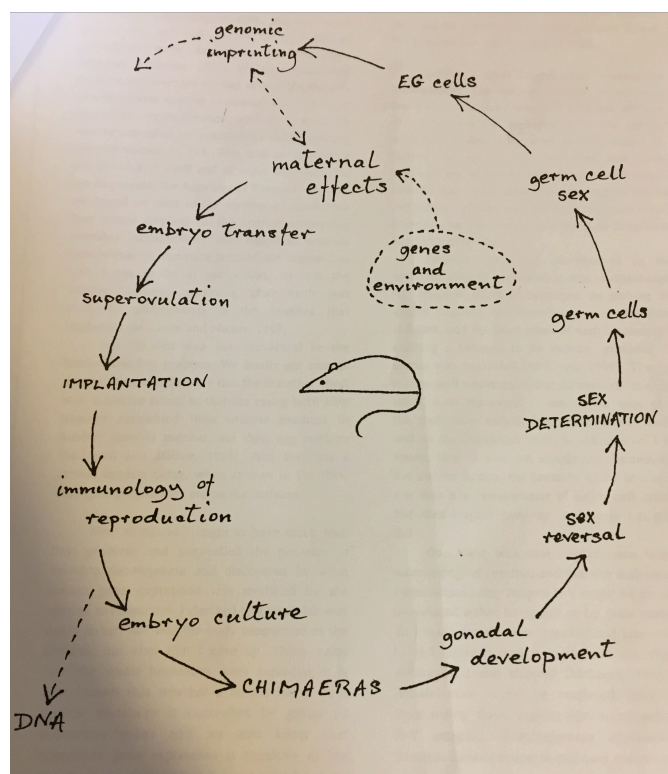 genomic
imprinting
EG cells
maternal
effects
germ cell
sex
embryo transfer
genes
and
environment
superovulation
germ cells
IMPLANTATION
SEX
DETERMINATION
immunology of
reproduction
sex
reversal
embryo culture
gonadal
development
CHIMAERAS
DNA